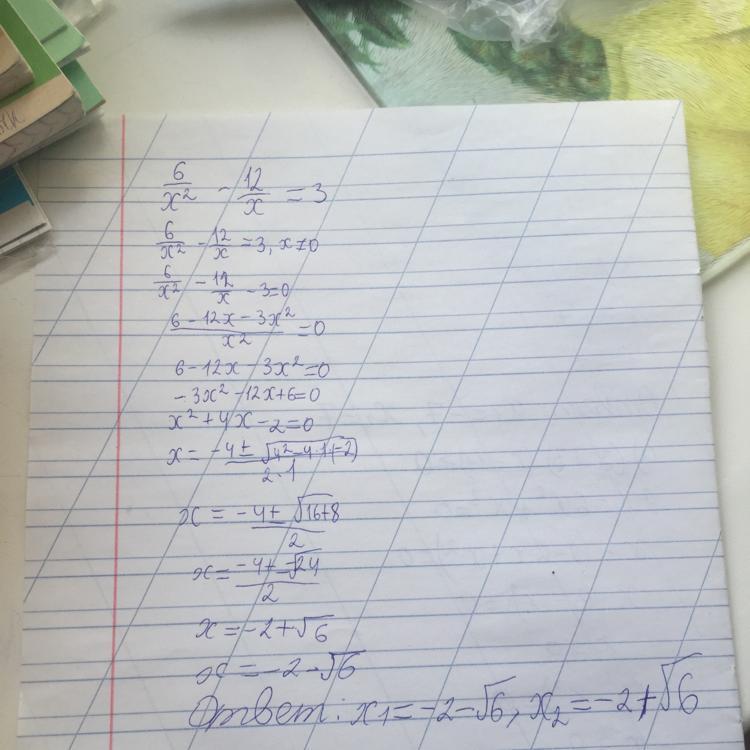 6/x² - 12/x = 3
6/x² - 12/x = 3, x ≠ 0
6/x² - 12/x - 3 = 0
(6 - 12x - 3x²)/x² = 0
6 - 12x - 3x² = 0
- 3x² - 12x + 6 = 0
x² + 4x - 2 = 0
x = (-4 ± √(4² - 4·1·(-2)))/(2·1)
x = (-4 ± √(16+8))/2
x = (-4 ± √24)/2
x = -2 + √6
x = -2 - √6
Ответ: x₁ = -2 - √6, x₂ = -2 + √6